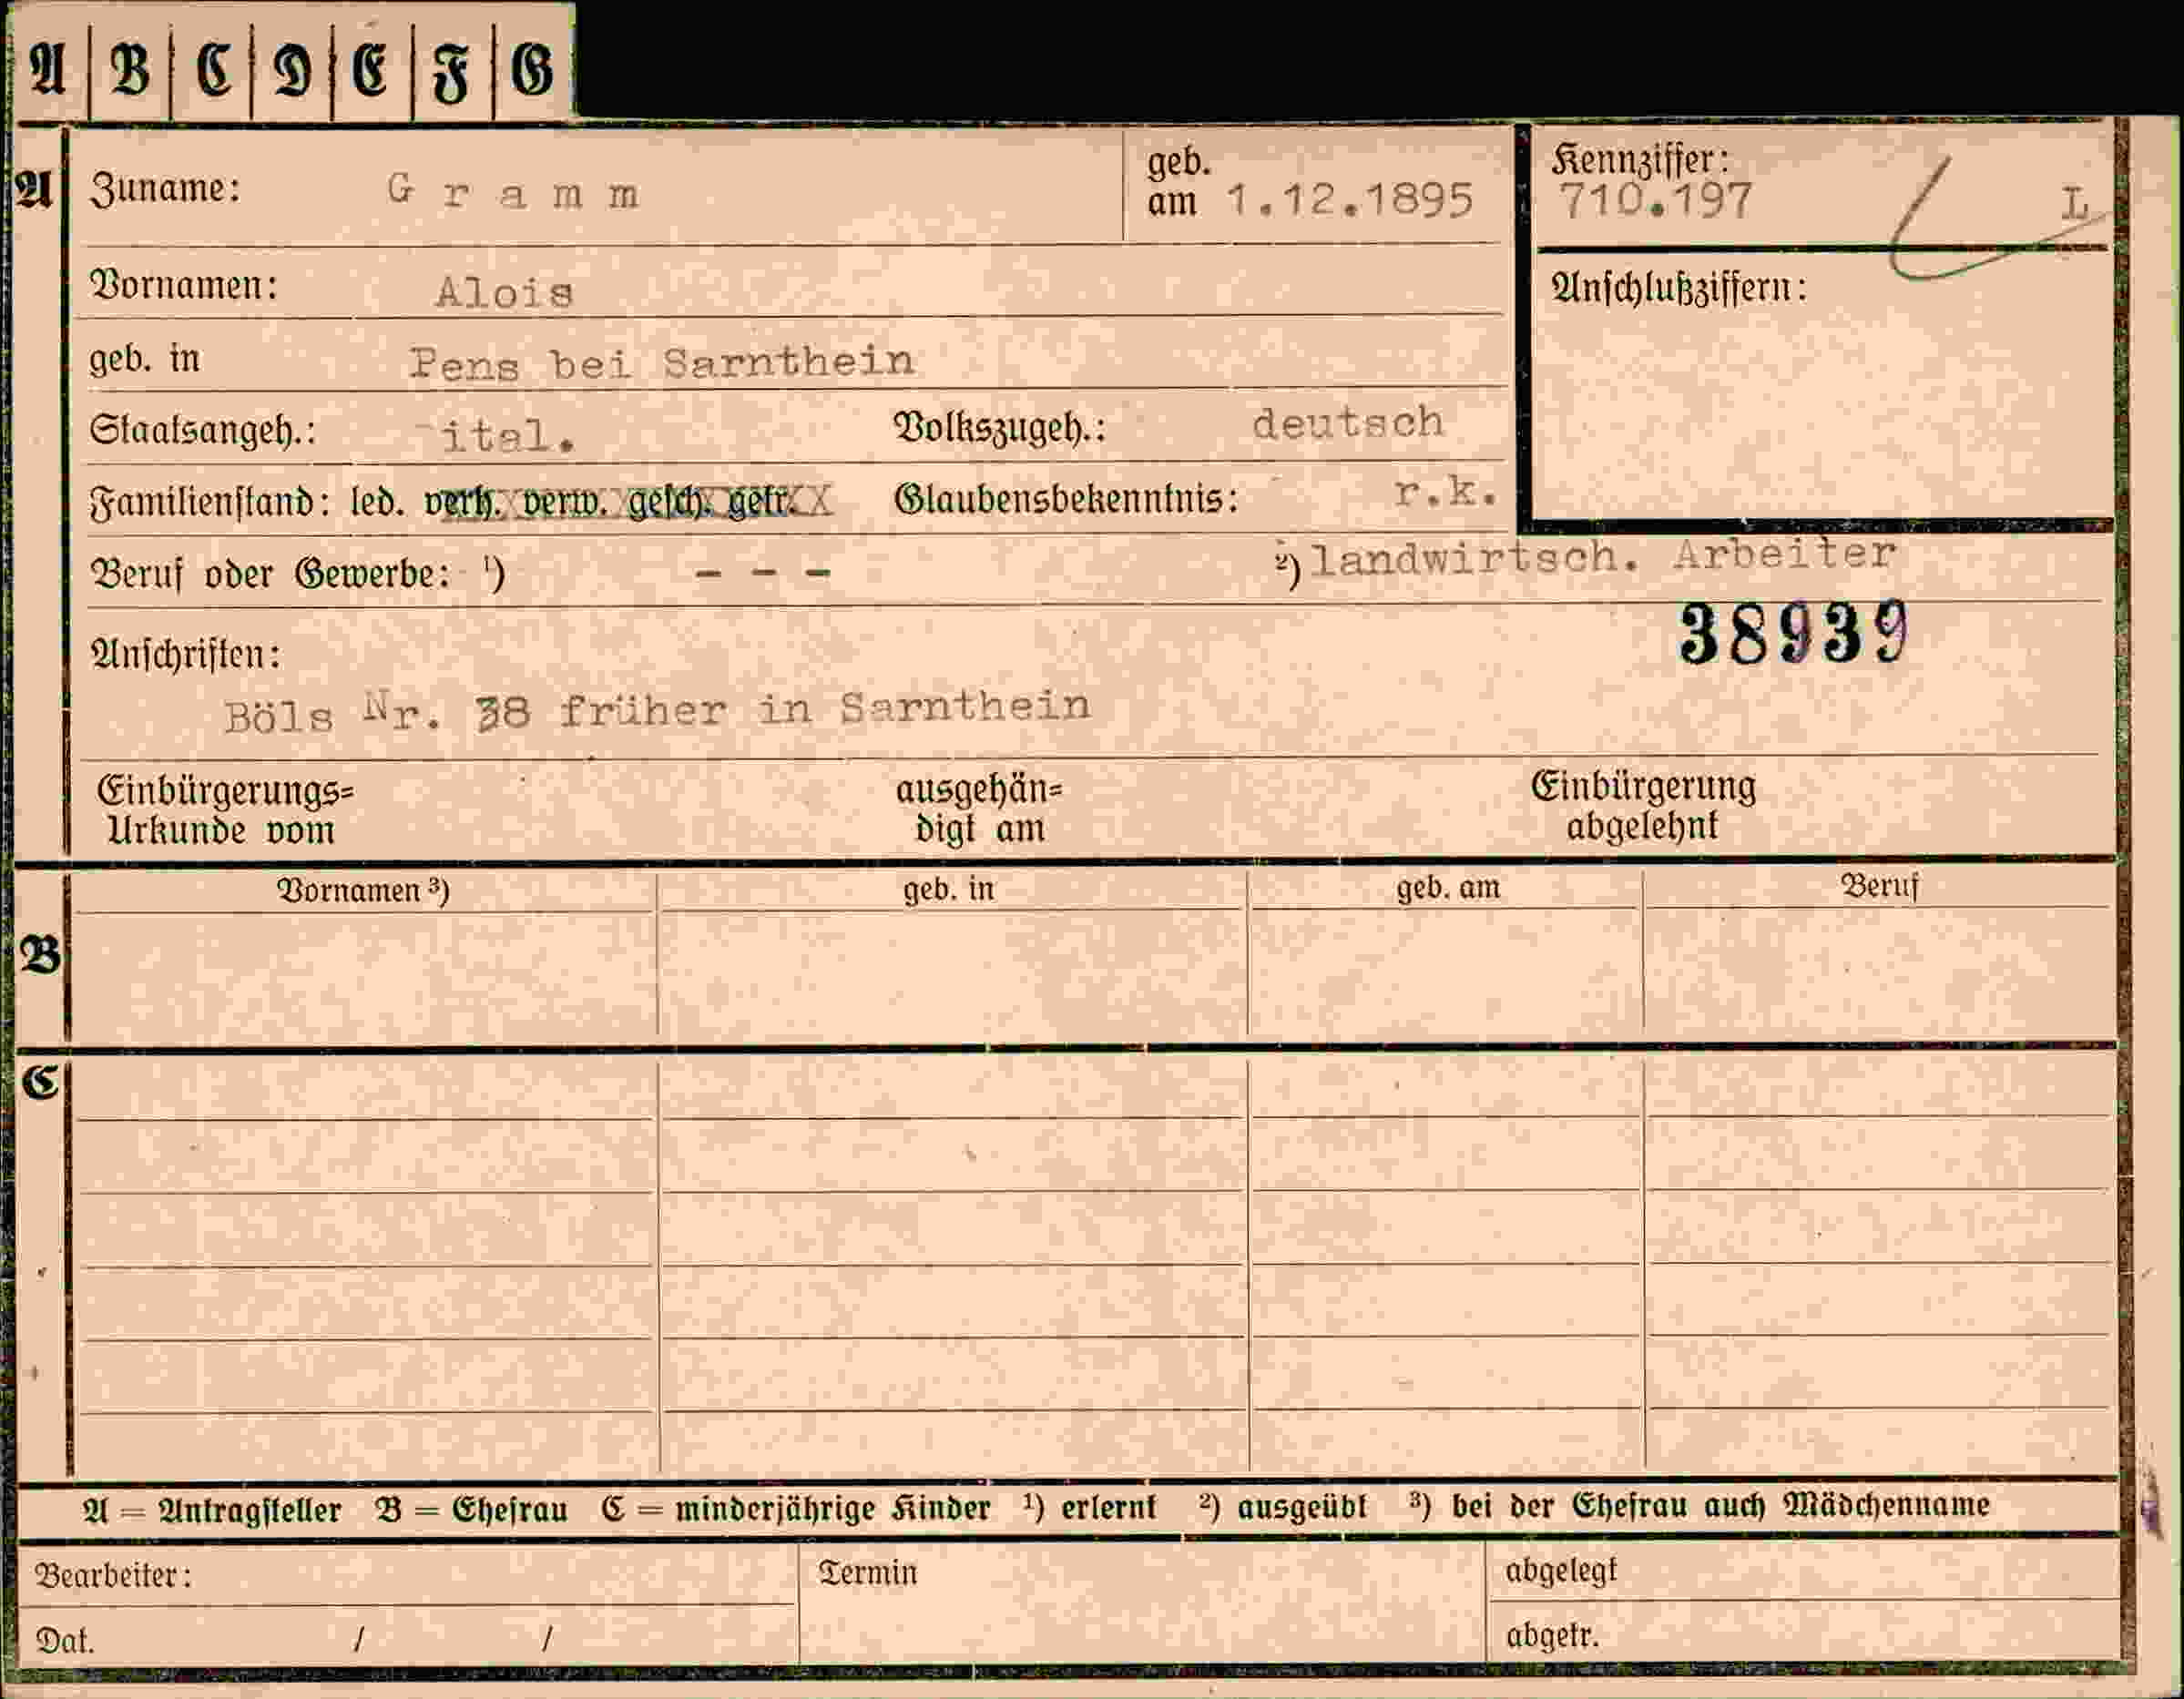 A B C D E F G
A Zuname: Gramm geb. am 1.12.1895 Kennziffer: 710.197 L
Vornamen: Alois Anschlußziffern:
geb. in Pens bei Sarnthein
Staatsangeh.: ital. Volkszugeh.: deutsch
Familienstand: led. verh. verw. gesch. getr. Glaubensbekenntnis: r.k.
Beruf oder Gewerbe: ¹) - - - ²) landwirtsch. Arbeiter
38939
Anschriften:
Böls Nr. 38 früher in Sarnthein
Einbürgerungs= ausgehän= Einbürgerung
Urkunde vom digt am abgelehnt
Vornamen ³) geb. in geb. am Beruf
B
C
A = Antragsteller B = Ehefrau C = minderjährige Kinder ¹) erlernt ²) ausgeübt ³) bei der Ehefrau auch Mädchenname
Bearbeiter: Termin abgelegt
Dat. / / abgetr.